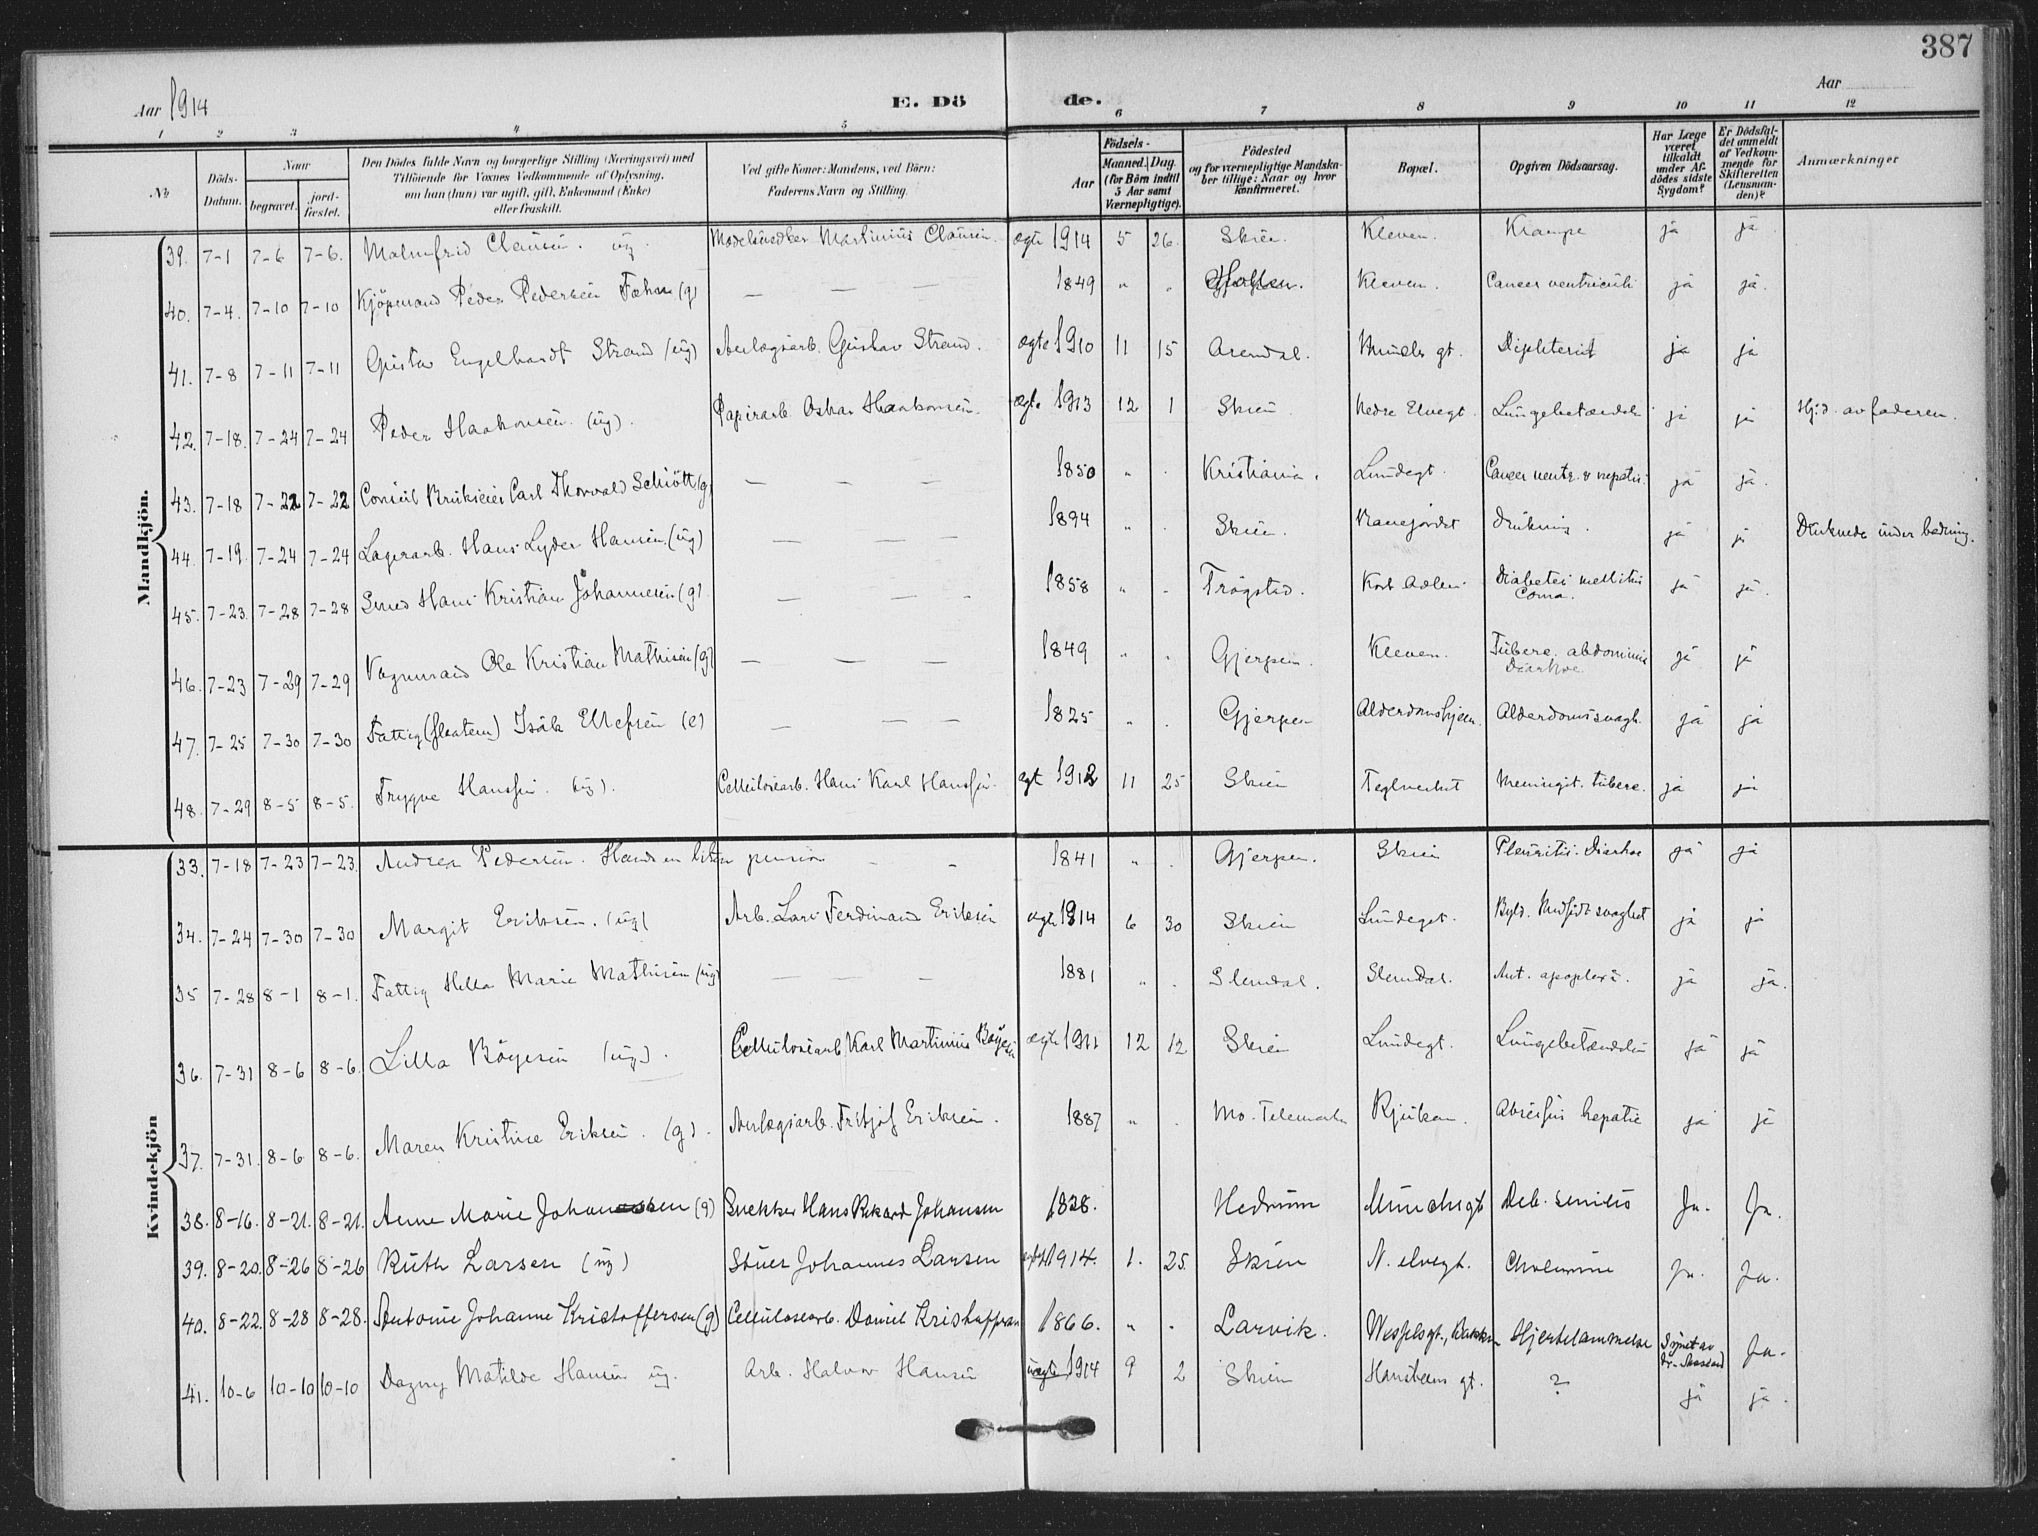 387
Aar 1914
E. Dö de.
Aar
1 2 3 4 5 6 7 8 9 10 11 12
No
Döds-Datum.
Naar
begravet.
jord-fæstet.
Den Dödes fulde Navn og borgerlige Stilling (Næringsvei) med
Tilföiende for Voxnes Vedkommende af Oplysning,
om han (hun) var ugift, gift, Enkemand (Enke)
eller fraskilt.
Ved gifte Koner: Mandens, ved Börn:
Faderens Navn og Stilling.
Födsels-
Aar
Maaned. Dag
(for Börn indtil
5 Aar samt
Værnepligtige).
Födested
og for værnepligtige Mandska-
ber tillige: Naar og hvor
konfirmeret.
Bopæl.
Opgiven Dödsaarsag.
Har Læge
været
tilkaldt
under Af-
dödes sidste
Sygdom?
Er Dödsfal-
det anmeldt
af Vedkom-
mende for
Skifteretten
(Lensman-
den)?
Anmærkninger
Mandkjön.
39. 7-1 7-6 7-6. Malmfrid Clausen. ug. Modelsnedker Martinius Clausen. ægte 1914 5 26. Skien. Kleven. Krampe ja ja
40. 7-4. 7-10 7-10 Kjöpmand Peder Pedersen (g) — — — 1849 " " Kleven. Cancer ventriculi ja ja.
41. 7-8 7-11 7-11 Gustav Engelhardt Strand (ug) Anlægsarb. Gustav Strand. ægte 1910 11 15 Arendal. gt. Difteterit ja ja
42. 7-18. 7-24 7-24 Peder Haakonsen. (ug). Papirarb. Oskar Haakonsen. ægte 1913 12 1 Skien Nedre Elvegt. Lungebetændelse ja ja Hjd. av faderen.
43. 7-18 7-22 7-22 Consul Brukseier Carl Thorvald Schiött (g) — — — 1850 " . Kristiania. Lundegt. Cancer ventr. & hepatis. ja ja.
44. 7-19. 7-24 7-24 Lagerarb. Hans Lyder Hansen. (ug) — — — 1894 " . Skien. Drukning. ja ja Druknede under badning.
45. 7-23. 7-28 7-28 Smed Hans Kristian Johannesen (g) — — — 1858 " . Trögstad. Kort Adeler. Diabetes mellitus
Coma. ja ja.
46. 7-23 7-29 7-29 Vognmand Ole Kristian Mathisen (g) — — — 1849 " . Gjerpen. Kleven. Tuberc. abdominis
Diarhoe. ja ja
47. 7-25 7-30 7-30 Fattig (fløatem) Isak Ellefsen (e) — — — 1825 " . Gjerpen Alderdomshjem. Alderdomssvagh. ja ja
48. 7-29 8-5 8-5. Trygve Hanssen. (ug). Cellulosearb. Hans Karl Hanssen. ægt 1912 11 25 Skien Teglverket Meningit. tuberc. ja ja
Kvindekjön
33. 7-18 7-23 7-23. Andrea Pedersen. Havde en liten pension — — 1841 " . Gjerpen. Skien Pleuritis. Diarhoe ja ja
34. 7-24 7-30 7-30 Margit Eriksen. (ug) Arb. Lars Ferdinand Eriksen ægte 1914 6 30 Skien Lundegt. Medfödt svaghet ja ja
35 7-28 8-1 8-1. Fattig Hella Marie Mathisen (ug) — — — 1881 " . Slemdal. Slemdal. apoplexi. ja ja.
36. 7-31 8-6 8-6. Lilla Böyesen (ug). Cellulosearb. Karl Martinius Böyesen ægte 1911 12 12 Skien Lundegt. Lungebetændelse ja ja
37. 7-31. 8-6 8-6. Maren Kristine Eriksen. (g). Anlægsarb. Fritjof Eriksen. 1887 " . Mo. Telemark Rjukan. Abscessus hepatis ja ja
38. 8-16. 8-21. 8-21. Anne Marie Johannessen (g) Snekker Hans Rikard Johansen 1828. Hedrum Munchsgt Deb. senilis Ja. Ja.
39. 8-20. 8-26 8-26 Ruth Larsen (ug) Stuer Johannes Larsen ægte 1914. 1. 25 Skien N. elvegt. Cholerine Ja. Ja.
40. 8-22. 8-28 8-28. Antonie Johanne Kristoffersen (g) Cellulosearb. Daniel Kristoffersen 1866. " . Larvik. Wesselsgt., Bakken Hjertelammelse Synet av
dr. Ja.
41. 10-6 10-10 10-10 Dagny Matilde Hansen ug. Arb. Halvor Hansen uægte 1914 9 2 Skien Hansteens gt. ? ja ja.